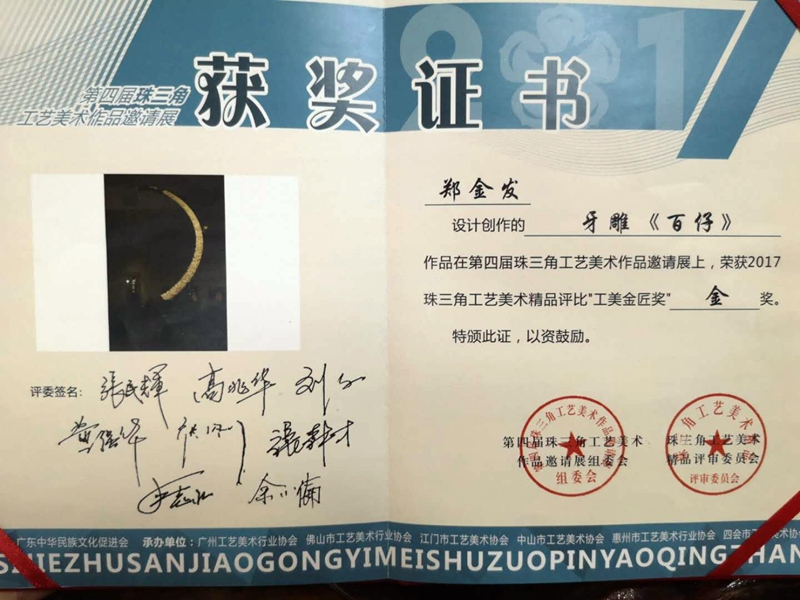 第四届珠三角
工艺美术作品邀请展
获奖证书
2017
郑金发
设计创作的 牙雕《百仔》
作品在第四届珠三角工艺美术作品邀请展上，荣获2017
珠三角工艺美术精品评比"工美金匠奖" 金 奖。
特颁此证，以资鼓励。
评委签名：
张民辉 高兆华
第四届珠三角工艺美术
作品邀请展组委会
组委会
珠三角工艺美术
精品评审委员会
评审委员会
广东中华民族文化促进会 承办单位：广州工艺美术行业协会 佛山市工艺美术行业协会 江门市工艺美术协会 中山市工艺美术协会 惠州市工艺美术行业协会 四会市工艺美术协
SHIEZHUSANJIAOGONGYIMEISHUZUOPINYAOQINGZHAN